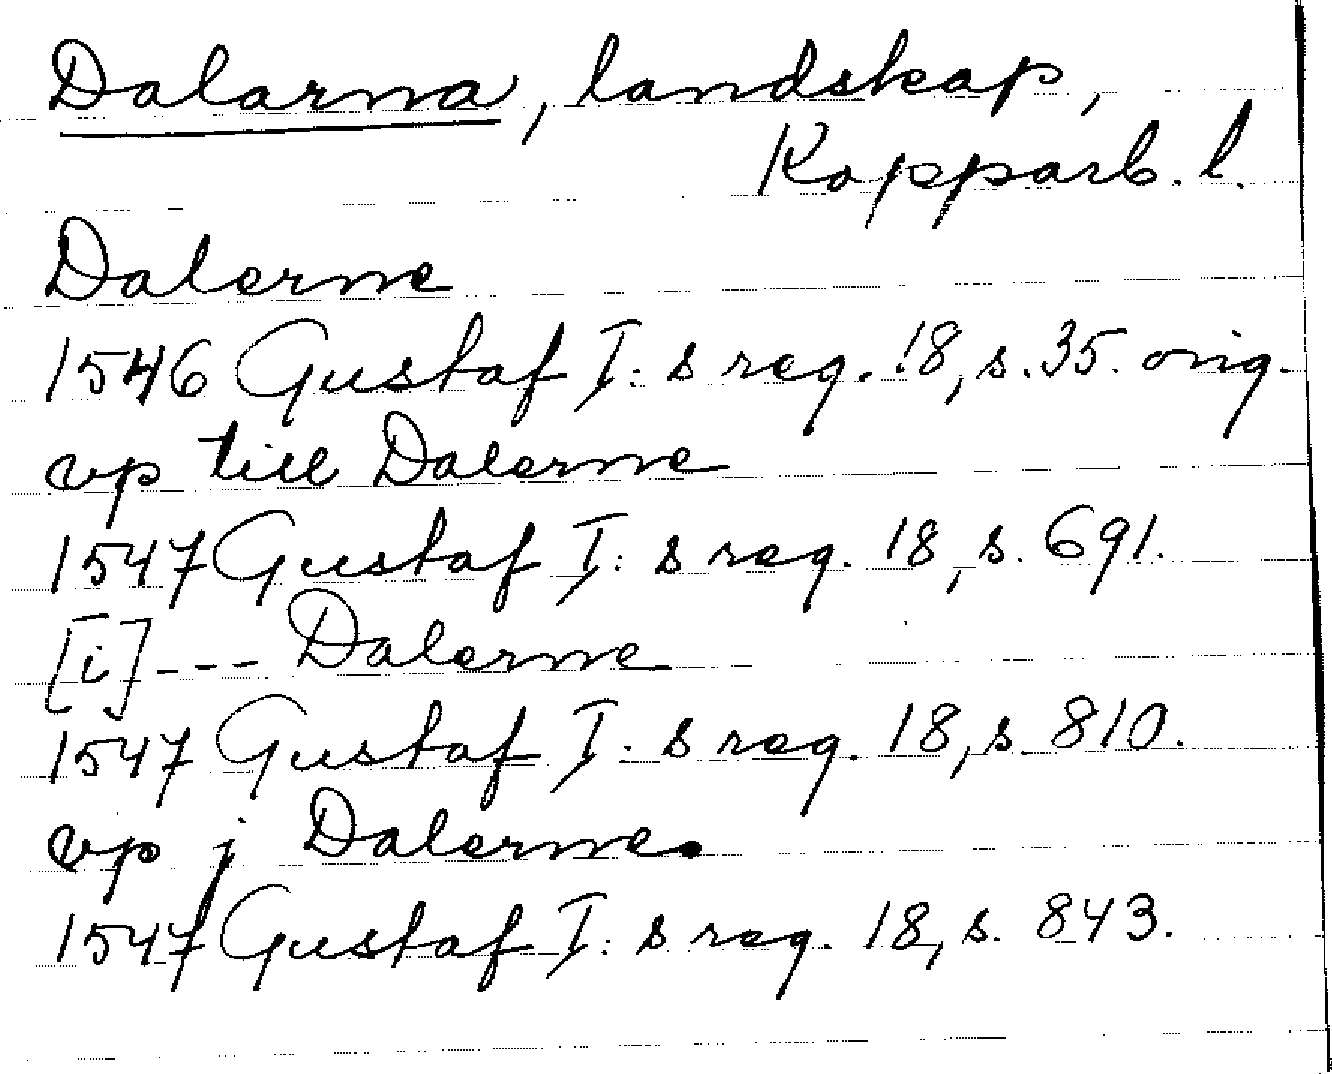 Dalarna, landskap,
Kopparb. l.
Dalerne
1546 Gustaf I: s reg. 18, s. 35. orig.
vp till Dalerne
1547 Gustaf I: s reg. 18, s. 691.
[i] --- Dalerne
1547 Gustaf I: s reg. 18, s. 810.
vp j Dalerne.
1547 Gustaf I: s reg. 18, s. 843.